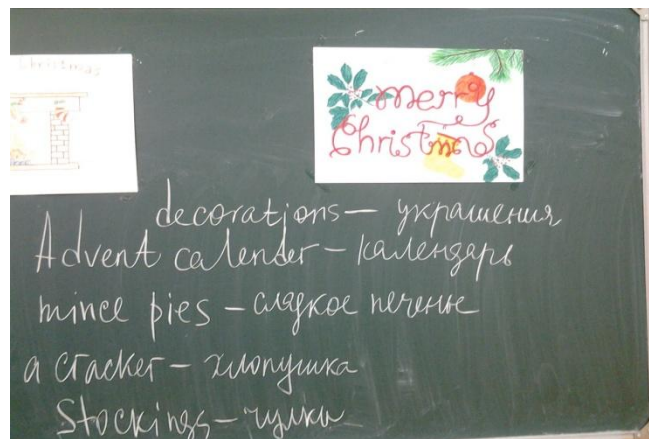 Christmas
Merry
Christmas
decorations – украшения
Advent calender – календарь
mince pies – сладкое печенье
a cracker – хлопушка
Stockings – чулки